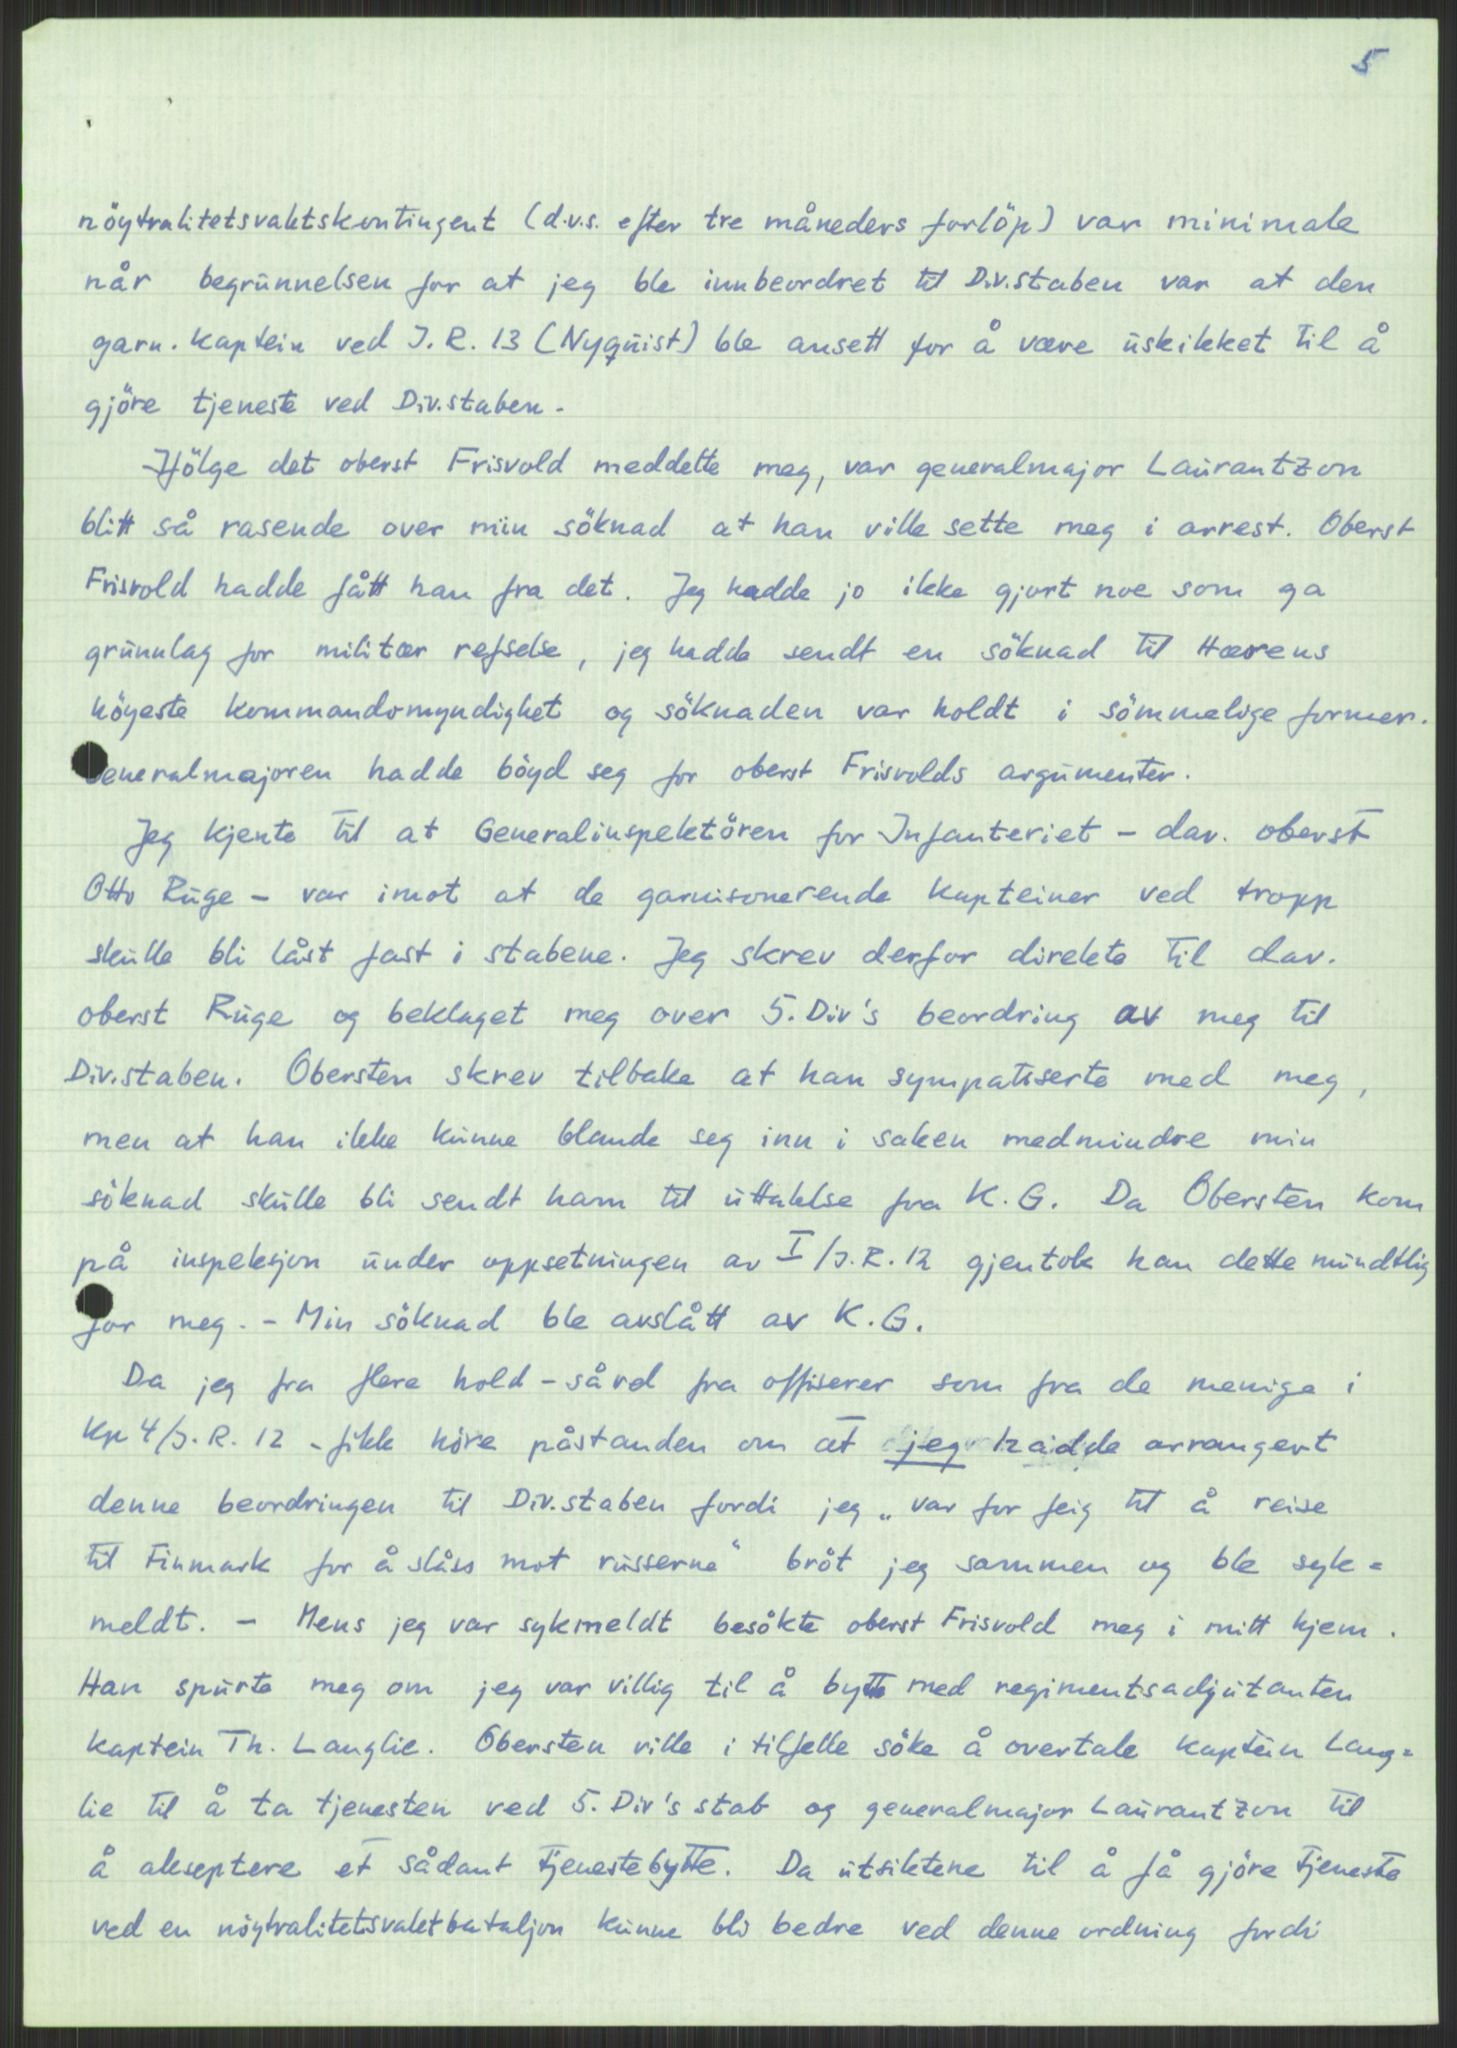 5
nöytralitetsvaktskontingent (d.v.s. efter tre måneders forlöp) var minimale
når begrunnelsen for at jeg ble innbeordret til Div.staben var at den
garn. kaptein ved J.R. 13 (Nyquist) ble ansett for å være uskikket til å
gjöre tjeneste ved Div.staben.
Ifölge det oberst Frisvold meddelte meg, var generalmajor Laurantzon
blitt så rasende over min söknad at han ville sette meg i arrest. Oberst
Frisvold hadde fått han fra det. Jeg hadde jo ikke gjort noe som ga
grunnlag for militær refselse, jeg hadde sendt en söknad til Hærens
höyeste kommandomyndighet og söknaden var holdt i sömmelige former.
Generalmajoren hadde böyd seg for oberst Frisvolds argumenter.
Jeg kjente til at Generalinspektören for Infanteriet - dav. oberst
Otto Ruge - var imot at de garnisonerende kapteiner ved tropp
skulle bli låst fast i stabene. Jeg skrev derfor direkte til dav.
oberst Ruge og beklaget meg over 5. Div's beordring av meg til
Div.staben. Obersten skrev tilbake at han sympatiserte med meg,
men at han ikke kunne blande seg inn i saken medmindre min
söknad skulle bli sendt ham til uttalelse fra K.G. Da Obersten kom
på inspeksjon under oppsetningen av I/J.R. 12 gjentok han dette mundtlig
for meg. - Min söknad ble avslått av K.G.
Da jeg fra flere hold - såvel fra offiserer som fra de menige i
Kp 4/J.R. 12 - fikk höre påstanden om at jeg hadde arrangert
denne beordringen til Div.staben fordi jeg „var for feig til å reise
til Finmark for å slåss mot russerne“ bröt jeg sammen og ble syk=
meldt. - Mens jeg var sykmeldt besökte oberst Frisvold meg i mitt hjem.
Han spurte meg om jeg var villig til å bytte med regimentsadjutanten
kaptein Th. Langlie. Obersten ville i tilfelle söke å overtale kaptein Lang=
lie til å ta tjenesten ved 5. Div's stab og generalmajor Laurantzon til
å akseptere et sådant tjenestebytte. Da utsiktene til å få gjöre tjeneste
ved en nöytralitetsvaktbataljon kunne bli bedre ved denne ordning fordi